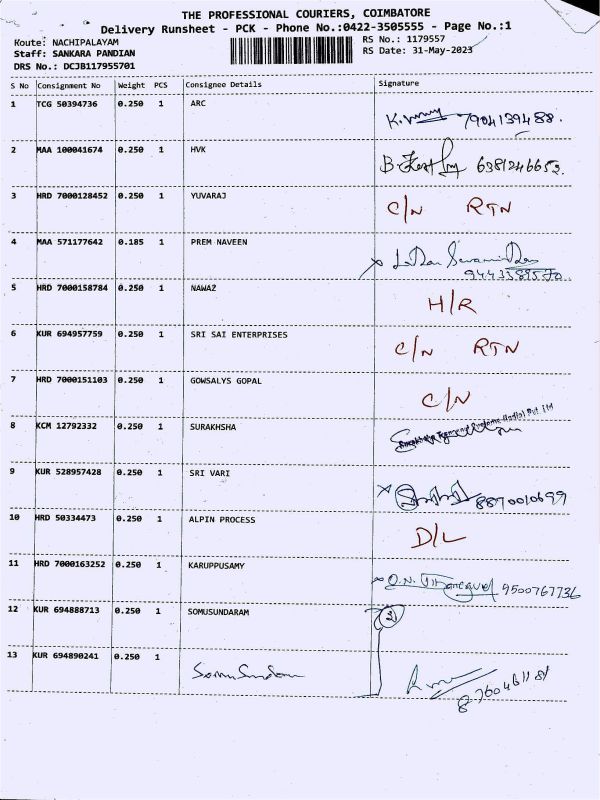 THE PROFESSIONAL COURIERS, COIMBATORE
Delivery Runsheet - PCK - Phone No.:0422-3505555 - Page No.:1
Route: NACHIPALAYAM RS No.: 1179557
Staff: SANKARA PANDIAN RS Date: 31-May-2023
DRS No.: DCJB117955701
S No Consignment No Weight PCS Consignee Details Signature
1 TCG 50394736 0.250 1 ARC 7904139488.
2 MAA 100041674 0.250 1 HVK 6381246652.
3 HRD 7000128452 0.250 1 YUVARAJ C/N RTN
4 MAA 571177642 0.185 1 PREM NAVEEN
5 HRD 7000158784 0.250 1 NAWAZ H/R
6 KUR 694957759 0.250 1 SRI SAI ENTERPRISES C/N RTN
7 HRD 7000151103 0.250 1 GOWSALYS GOPAL C/N
8 KCM 12792332 0.250 1 SURAKHSHA Pvt Ltd
9 KUR 528957428 0.250 1 SRI VARI 8870010699
10 HRD 50334473 0.250 1 ALPIN PROCESS D/L
11 HRD 7000163252 0.250 1 KARUPPUSAMY 9500767736
12 KUR 694888713 0.250 1 SOMUSUNDARAM 2
13 KUR 694890241 0.250 1